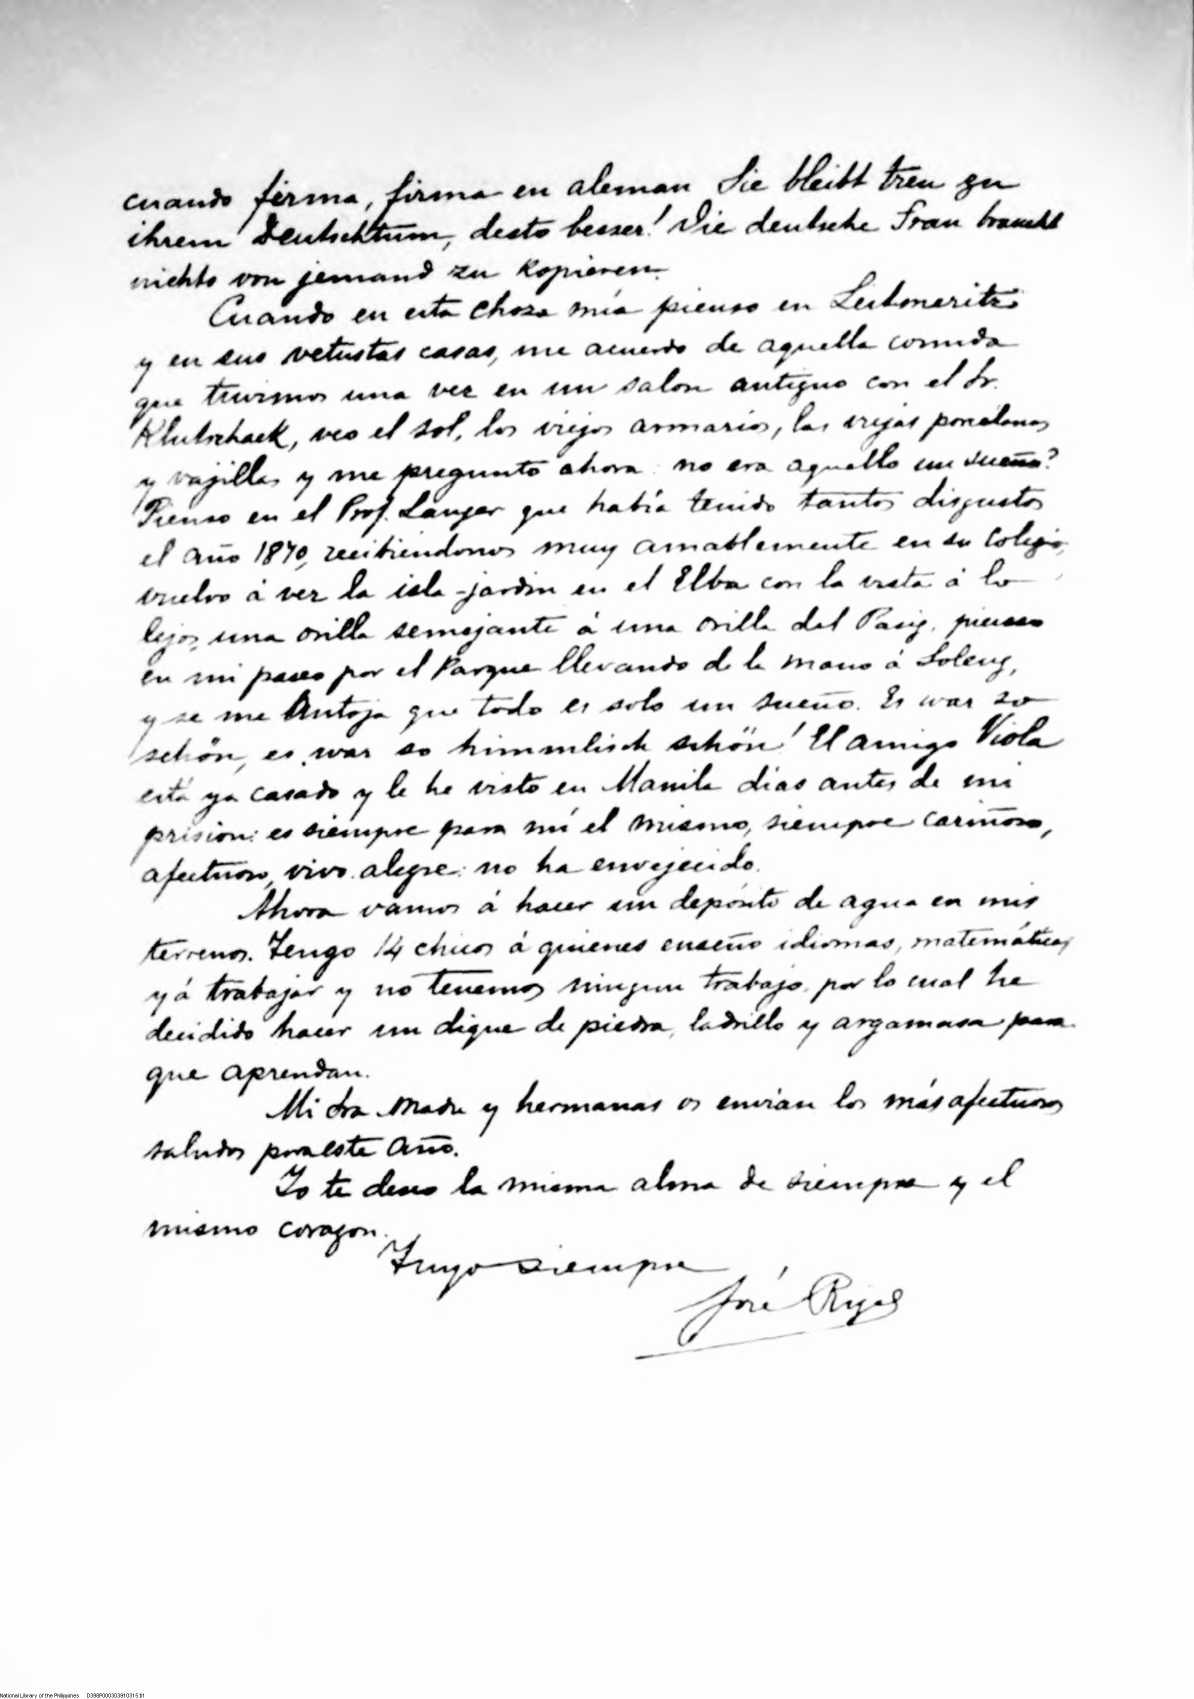 cuando firma, firma en aleman Sie bleibt treu zu
ihrem Deutschtum, desto besser! Die deutsche Frau braucht
nichts von jemand zu kopieren.
Cuando en esta choza mía pienso en Leitmeritz
y en sus vetustas casas, me acuerdo de aquella comida
que tuvimos una vez en un salon antiguo con el Dr.
Klutschack, veo el sol, los viejos armarios, las viejas porcelanas
y vajillas y me pregunto ahora: no era aquello un sueño?
Pienso en el Prof. Langer que había tenido tantos disgustos
el año 1870, recibiendonos muy amablemente en su Colegio,
vuelvo á ver la isla-jardin en el Elba con la vista á lo
lejos, una orilla semejante á una orilla del Pasig, pienso
en mi paseo por el Parque llevando de la mano á Loleng,
y se me antoja que todo es solo un sueño. Es war so
schön, es war so himmlisch schön! El amigo Viola
está ya casado y le he visto en Manila dias antes de mi
prision: es siempre para mí el mismo, siempre cariñoso,
afectuoso, vivo. alegre: no ha envejecido.
Ahora vamos á hacer un depósito de agua en mis
terrenos. Tengo 14 chicos á quienes enseño idiomas, matemáticas
y á trabajar y no tenemos ningun trabajo, por lo cual he
decidido hacer un dique de piedra, ladrillo y argamasa para
que aprendan.
Mi Sra. Madre y hermanas os envian los más afectuosos
saludos para este año.
Yo te deseo la misma alma de siempre y el
mismo corazon.
Tuyo siempre
José Rizal
National Library of the Philippines